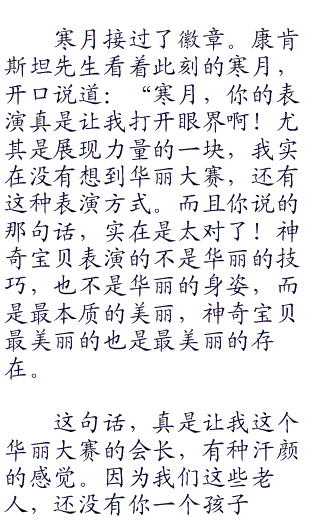 寒月接过了徽章。康肯
斯坦先生看着此刻的寒月，
开口说道：“寒月，你的表
演真是让我打开眼界啊！尤
其是展现力量的一块，我实
在没有想到华丽大赛，还有
这种表演方式。而且你说的
那句话，实在是太对了！神
奇宝贝表演的不是华丽的技
巧，也不是华丽的身姿，而
是最本质的美丽，神奇宝贝
最美丽的也是最美丽的存
在。
这句话，真是让我这个
华丽大赛的会长，有种汗颜
的感觉。因为我们这些老
人，还没有你一个孩子